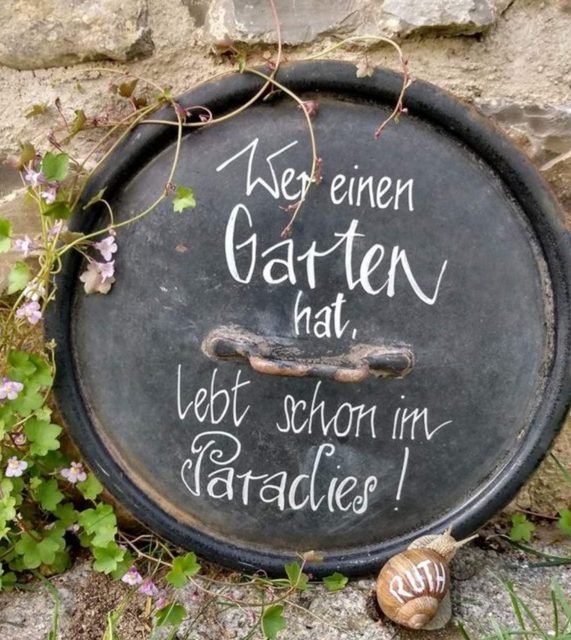 Wer einen
Garten
hat,
lebt schon im
Paradies!
RUTH